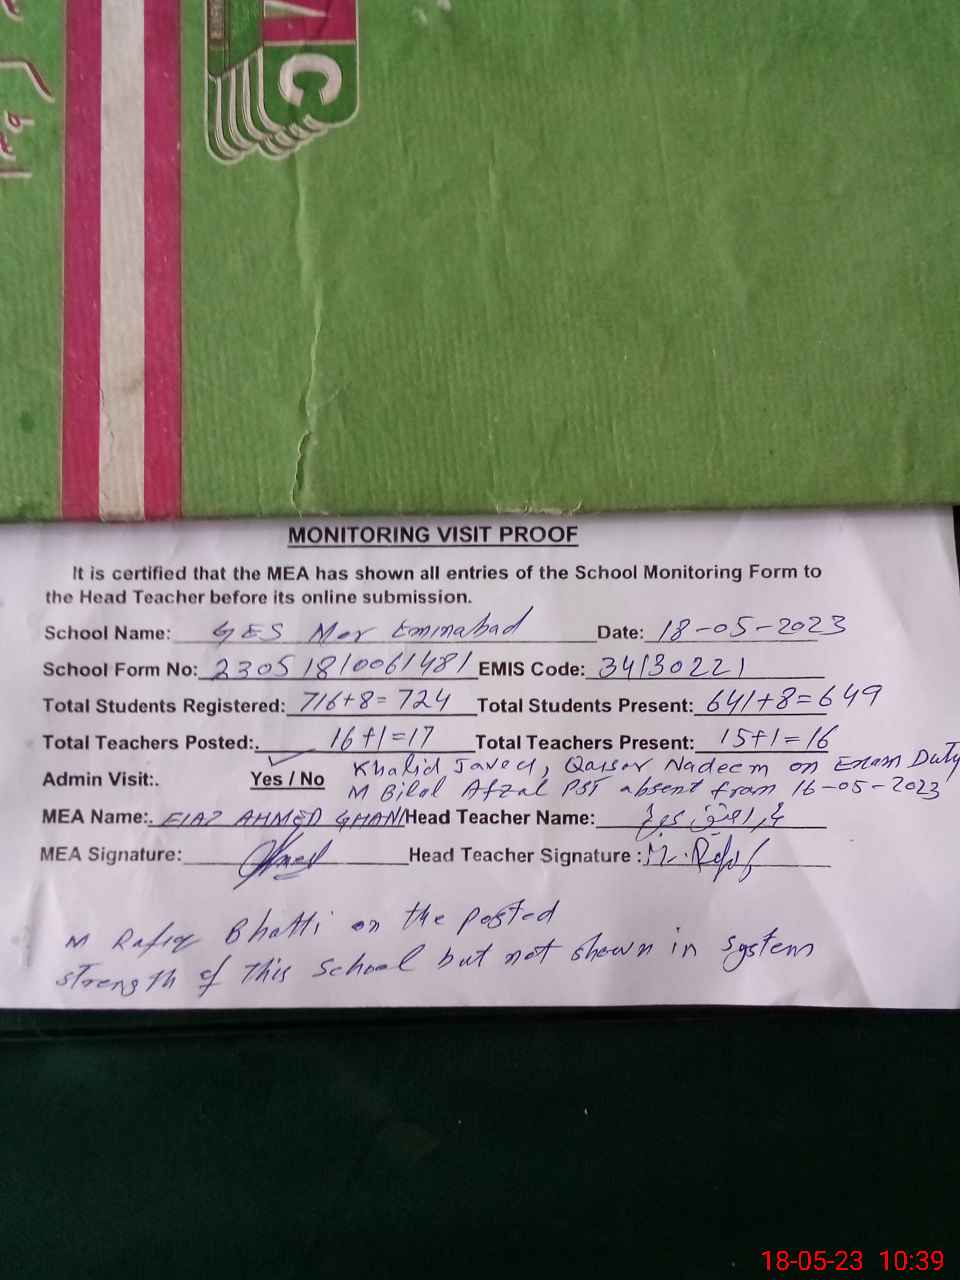 C
MONITORING VISIT PROOF
It is certified that the MEA has shown all entries of the School Monitoring Form to
the Head Teacher before its online submission.
School Name: GES Mor Eminabad Date: 18-05-2023
School Form No: 23051810061481 EMIS Code: 34130221
Total Students Registered: 716+8=724 Total Students Present: 641+8=649
Total Teachers Posted:. 16+1=17 Total Teachers Present: 15+1=16
Khalid Javed, Qaisar Nadeem on Exam Duty
Admin Visit:. Yes / No M Bilal Afzal PST absent from 16-05-2023
MEA Name:. EIAZ AHMED GHANI Head Teacher Name:
MEA Signature: Head Teacher Signature : M. Rafiq
M Rafiq Bhatti on the posted
strength of this school but not shown in system
18-05-23 10:39